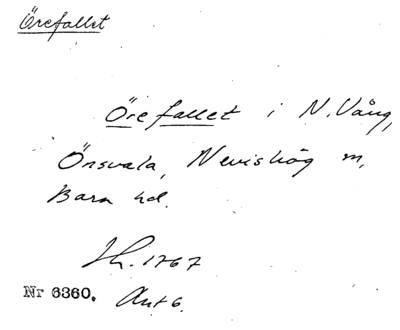 Örefallet
Örefallet i N. Vång,
Önsvala, Nevishög m,
Bara hd.
Lh. 1767
Nr 6360. Akt 6.